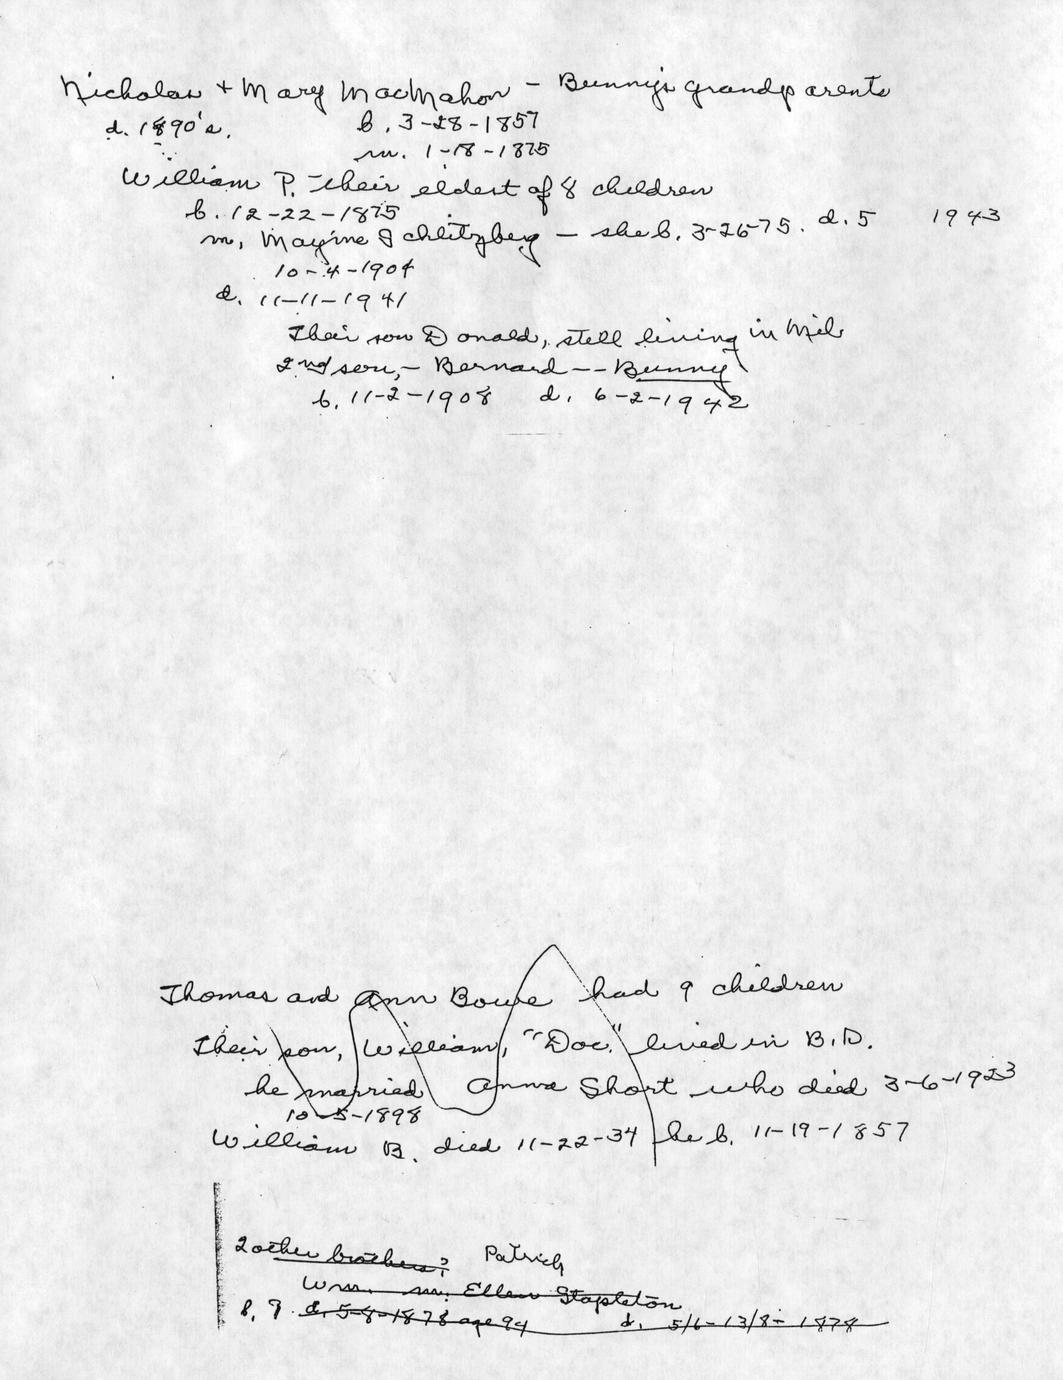 Nicholas + Mary MacMahon - Bunny's grandparents
d. 1890's. b. 3-28-1857
m. 1-18-1875
William P. - their eldest of 8 children
b. 12-22-1875
m, Mayme Schlitzberg - she b. 3-26-75. d. 5 1943
10-4-1904
d. 11-11-1941
Their son Donald, still living in Mil
2nd son, - Bernard -- Bunny
b. 11-2-1908 d. 6-2-1942
Thomas and Ann Bowe had 9 children
Their son, William, "Doc." lived in B.D.
he married Anna Short who died 3-6-1923
10-5-1898
William B. died 11-22-34 he b. 11-19-1857
2 other brothers? Patrick
Wm. m. Ellen Stapleton
d. 5-8-1878 age 94 d. 5/6-13/8- 1878